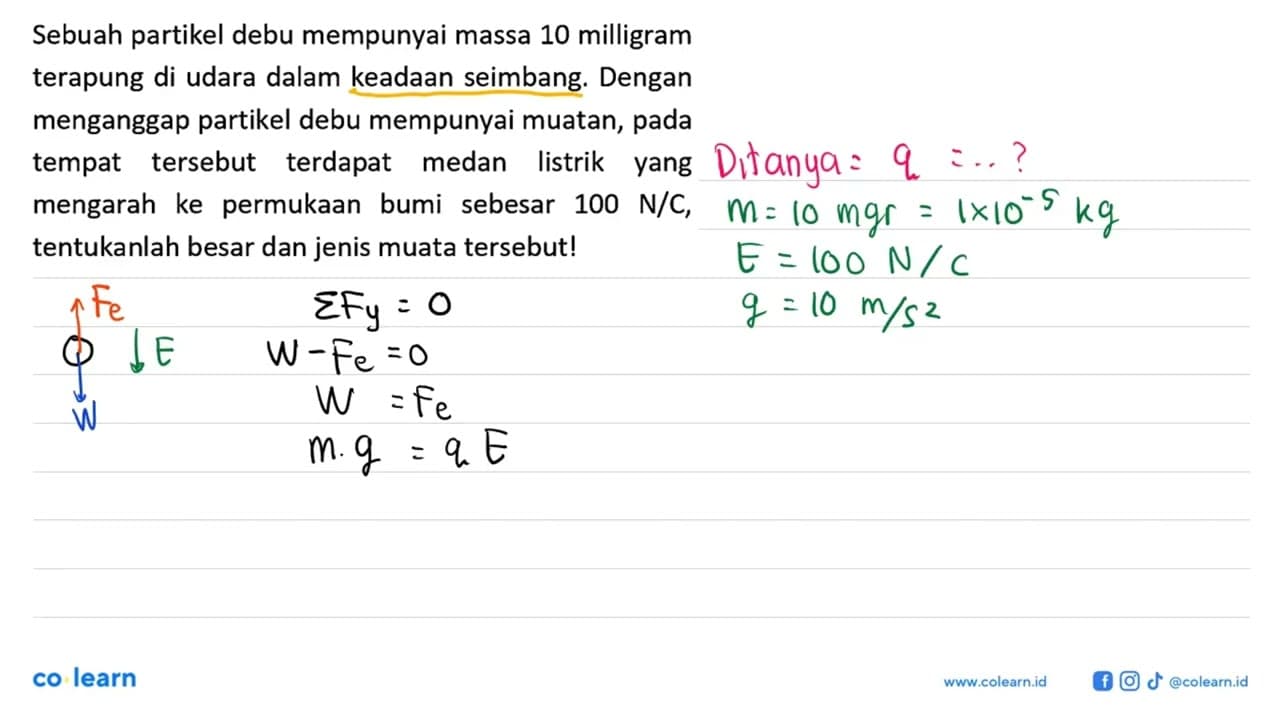 Sebuah partikel debu mempunyai massa 10 milligram
terapung di udara dalam keadaan seimbang. Dengan
menganggap partikel debu mempunyai muatan, pada
tempat tersebut terdapat medan listrik yang
mengarah ke permukaan bumi sebesar 100 N/C,
tentukanlah besar dan jenis muata tersebut!
Ditanya = q = .. ?
m = 10 mgr = 1×10⁻⁵ kg
E = 100 N/C
g = 10 m/s²
Fe
E
W
ΣFy = 0
W - Fe = 0
W = Fe
m.g = q E
co learn
www.colearn.id
@colearn.id